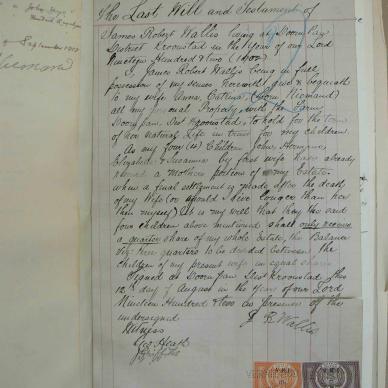 The Last Will and Testament of
James Robert Wallis living at Doornpan
District Kroonstad in the Year of our Lord
Nineteen Hundred & two (1902)
I, James Robert Wallis being in full
possession of my senses Herewith give & bequeath
to my wife Anna, Catrina, (born Niemand)
all my Property, with the farm
Doornpan, Dist Kroonstad, to hold for the term
of her natural life in trust for my children
As my four (4) Children John, Hermynie,
Elizabeth & Susanna by first wife have already
a Mothers portions of my Estate
when a final settlement is made after the death
of my Wife (or should I live longer than her
then myself) it is my will that they the said
four children above mentioned shall only receive
a quarter share of my whole Estate, the Balance
viz three quarters to be divided between the
children of my present wife in equal shares
Signed at Doornpan Dist Kroonstad this
12th day of August in the Year of our Lord
Nineteen Hundred & two in presence of the
undersigned
J R Wallis
Witness
Geo Heath
J Griffiths